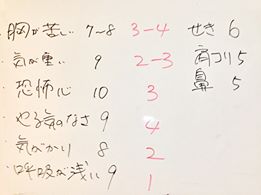 胸が苦い 7~8 3-4
気が重い 9 2-3
恐怖心 10 3
やる気のなさ 9 4
気がかり 8 2
呼吸が浅い 9 1
せき 6
肩コリ 5
鼻 5